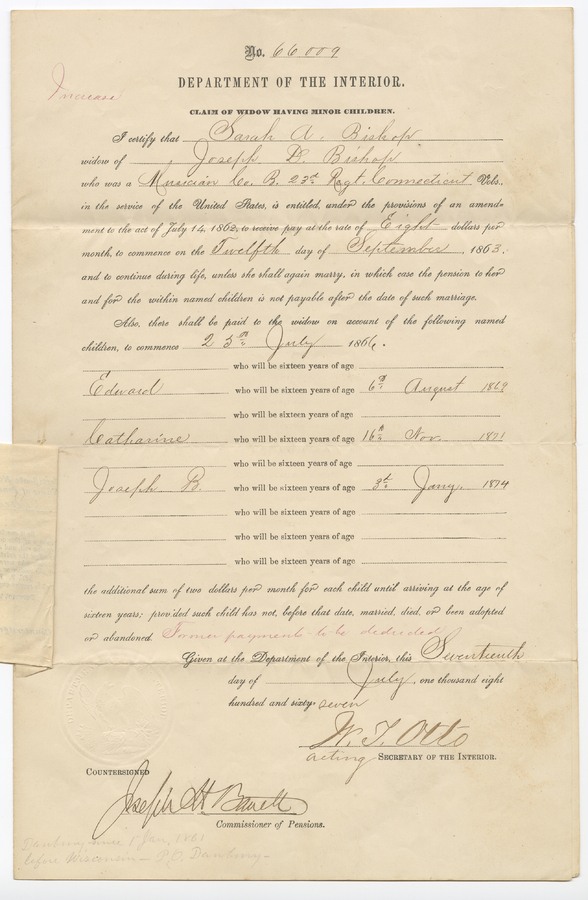 No. 66009
Increase
DEPARTMENT OF THE INTERIOR.
CLAIM OF WIDOW HAVING MINOR CHILDREN.
I certify that Sarah A. Bishop
widow of Joseph B. Bishop
who was a Musician Co. B. 23d Regt. Connecticut Vols.,
in the service of the United States, is entitled, under the provisions of an amend-
ment to the act of July 14, 1862, to receive pay at the rate of Eight dollars per
month, to commence on the Twelfth day of September, 1863,
and to continue during life, unless she shall again marry, in which case the pension to her
and for the within named children is not payable after the date of such marriage.
Also, there shall be paid to the widow on account of the following named
children, to commence 25th July 1866.
who will be sixteen years of age
Edward who will be sixteen years of age 6th August 1869
who will be sixteen years of age
Catharine who will be sixteen years of age 16th Nov. 1871
who will be sixteen years of age
Joseph B. who will be sixteen years of age 3d Jany. 1874
who will be sixteen years of age
who will be sixteen years of age
who will be sixteen years of age
the additional sum of two dollars per month for each child until arriving at the age of
sixteen years; provided such child has not, before that date, married, died, or been adopted
or abandoned. Former payments to be deducted
Given at the Department of the Interior, this Seventeenth
day of July, one thousand eight
hundred and sixty-seven
W. T. Otto
acting SECRETARY OF THE INTERIOR.
COUNTERSIGNED
Joseph H Barrett
Commissioner of Pensions.
Danbury since 1 Jan. 1861
before Wisconsin - P.O. Danbury -